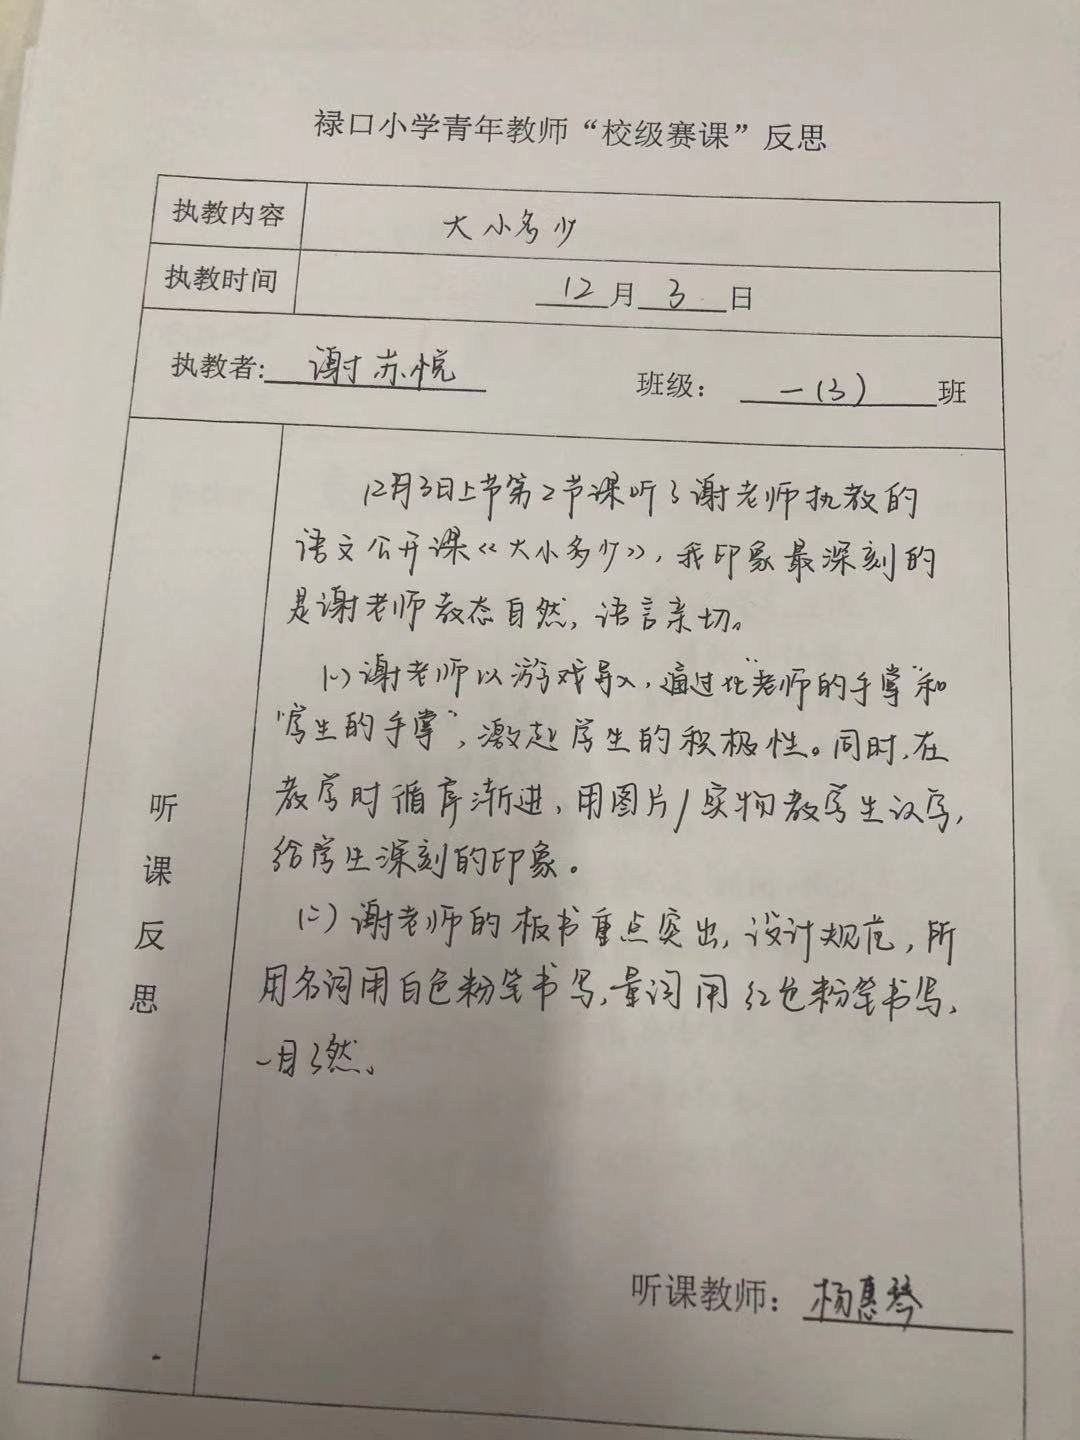 禄口小学青年教师“校级赛课”反思
执教内容 大小多少
执教时间 12月3日
执教者: 谢苏悦 班级: 一(3)班
12月3日上节第2节课听了谢老师执教的
语文公开课《大小多少》,我印象最深刻的
是谢老师教态自然,语言亲切。
(一)谢老师以游戏导入,通过比“老师的手掌”和
“学生的手掌”,激起学生的积极性。同时,在
教学时循序渐进,用图片/实物教学生认字,
给学生深刻的印象。
(二)谢老师的板书重点突出,设计规范,所
用名词用白色粉笔书写,量词用红色粉笔书写,
一目了然。
听课反思
听课教师: 杨惠琴